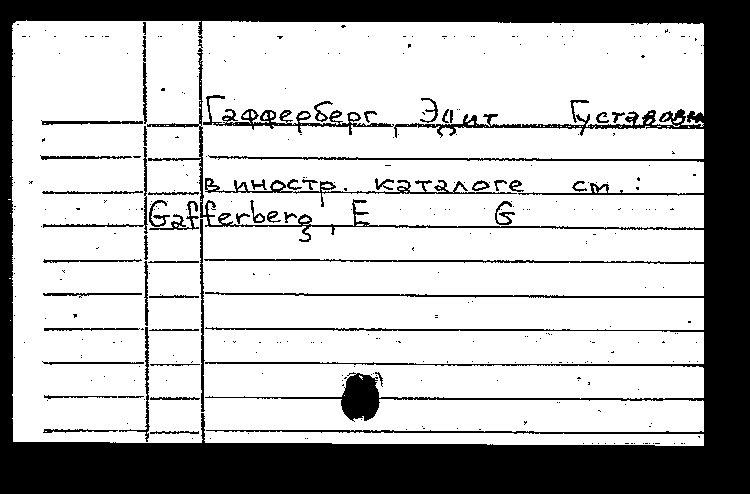 Гафферберг, Эдит Густавовн
в иностр. каталоге см.:
Gafferberg, E G